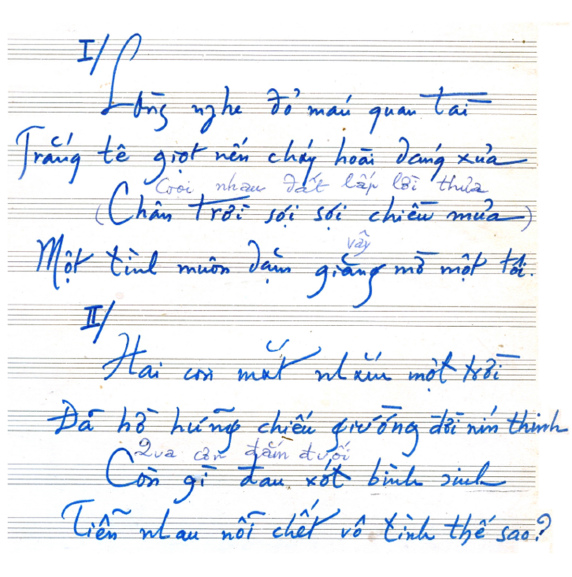 I/
Lòng nghe đỏ máu quan tài
Trắng tê giọt nến cháy hoài dáng xưa
Coi nhau đất lấp lời thừa
(Chân trời sói sói chiều mưa)
vây
Một tình muôn dặm giăng mồ một tôi.
II/
Hai con mắt nhắm một trời
Đá hồ hững chiếu giường đời nín thinh
Qua cơn đắm đuối
Còn gì đau xót bình sinh
Tiễn nhau nỗi chết vô tình thế sao?